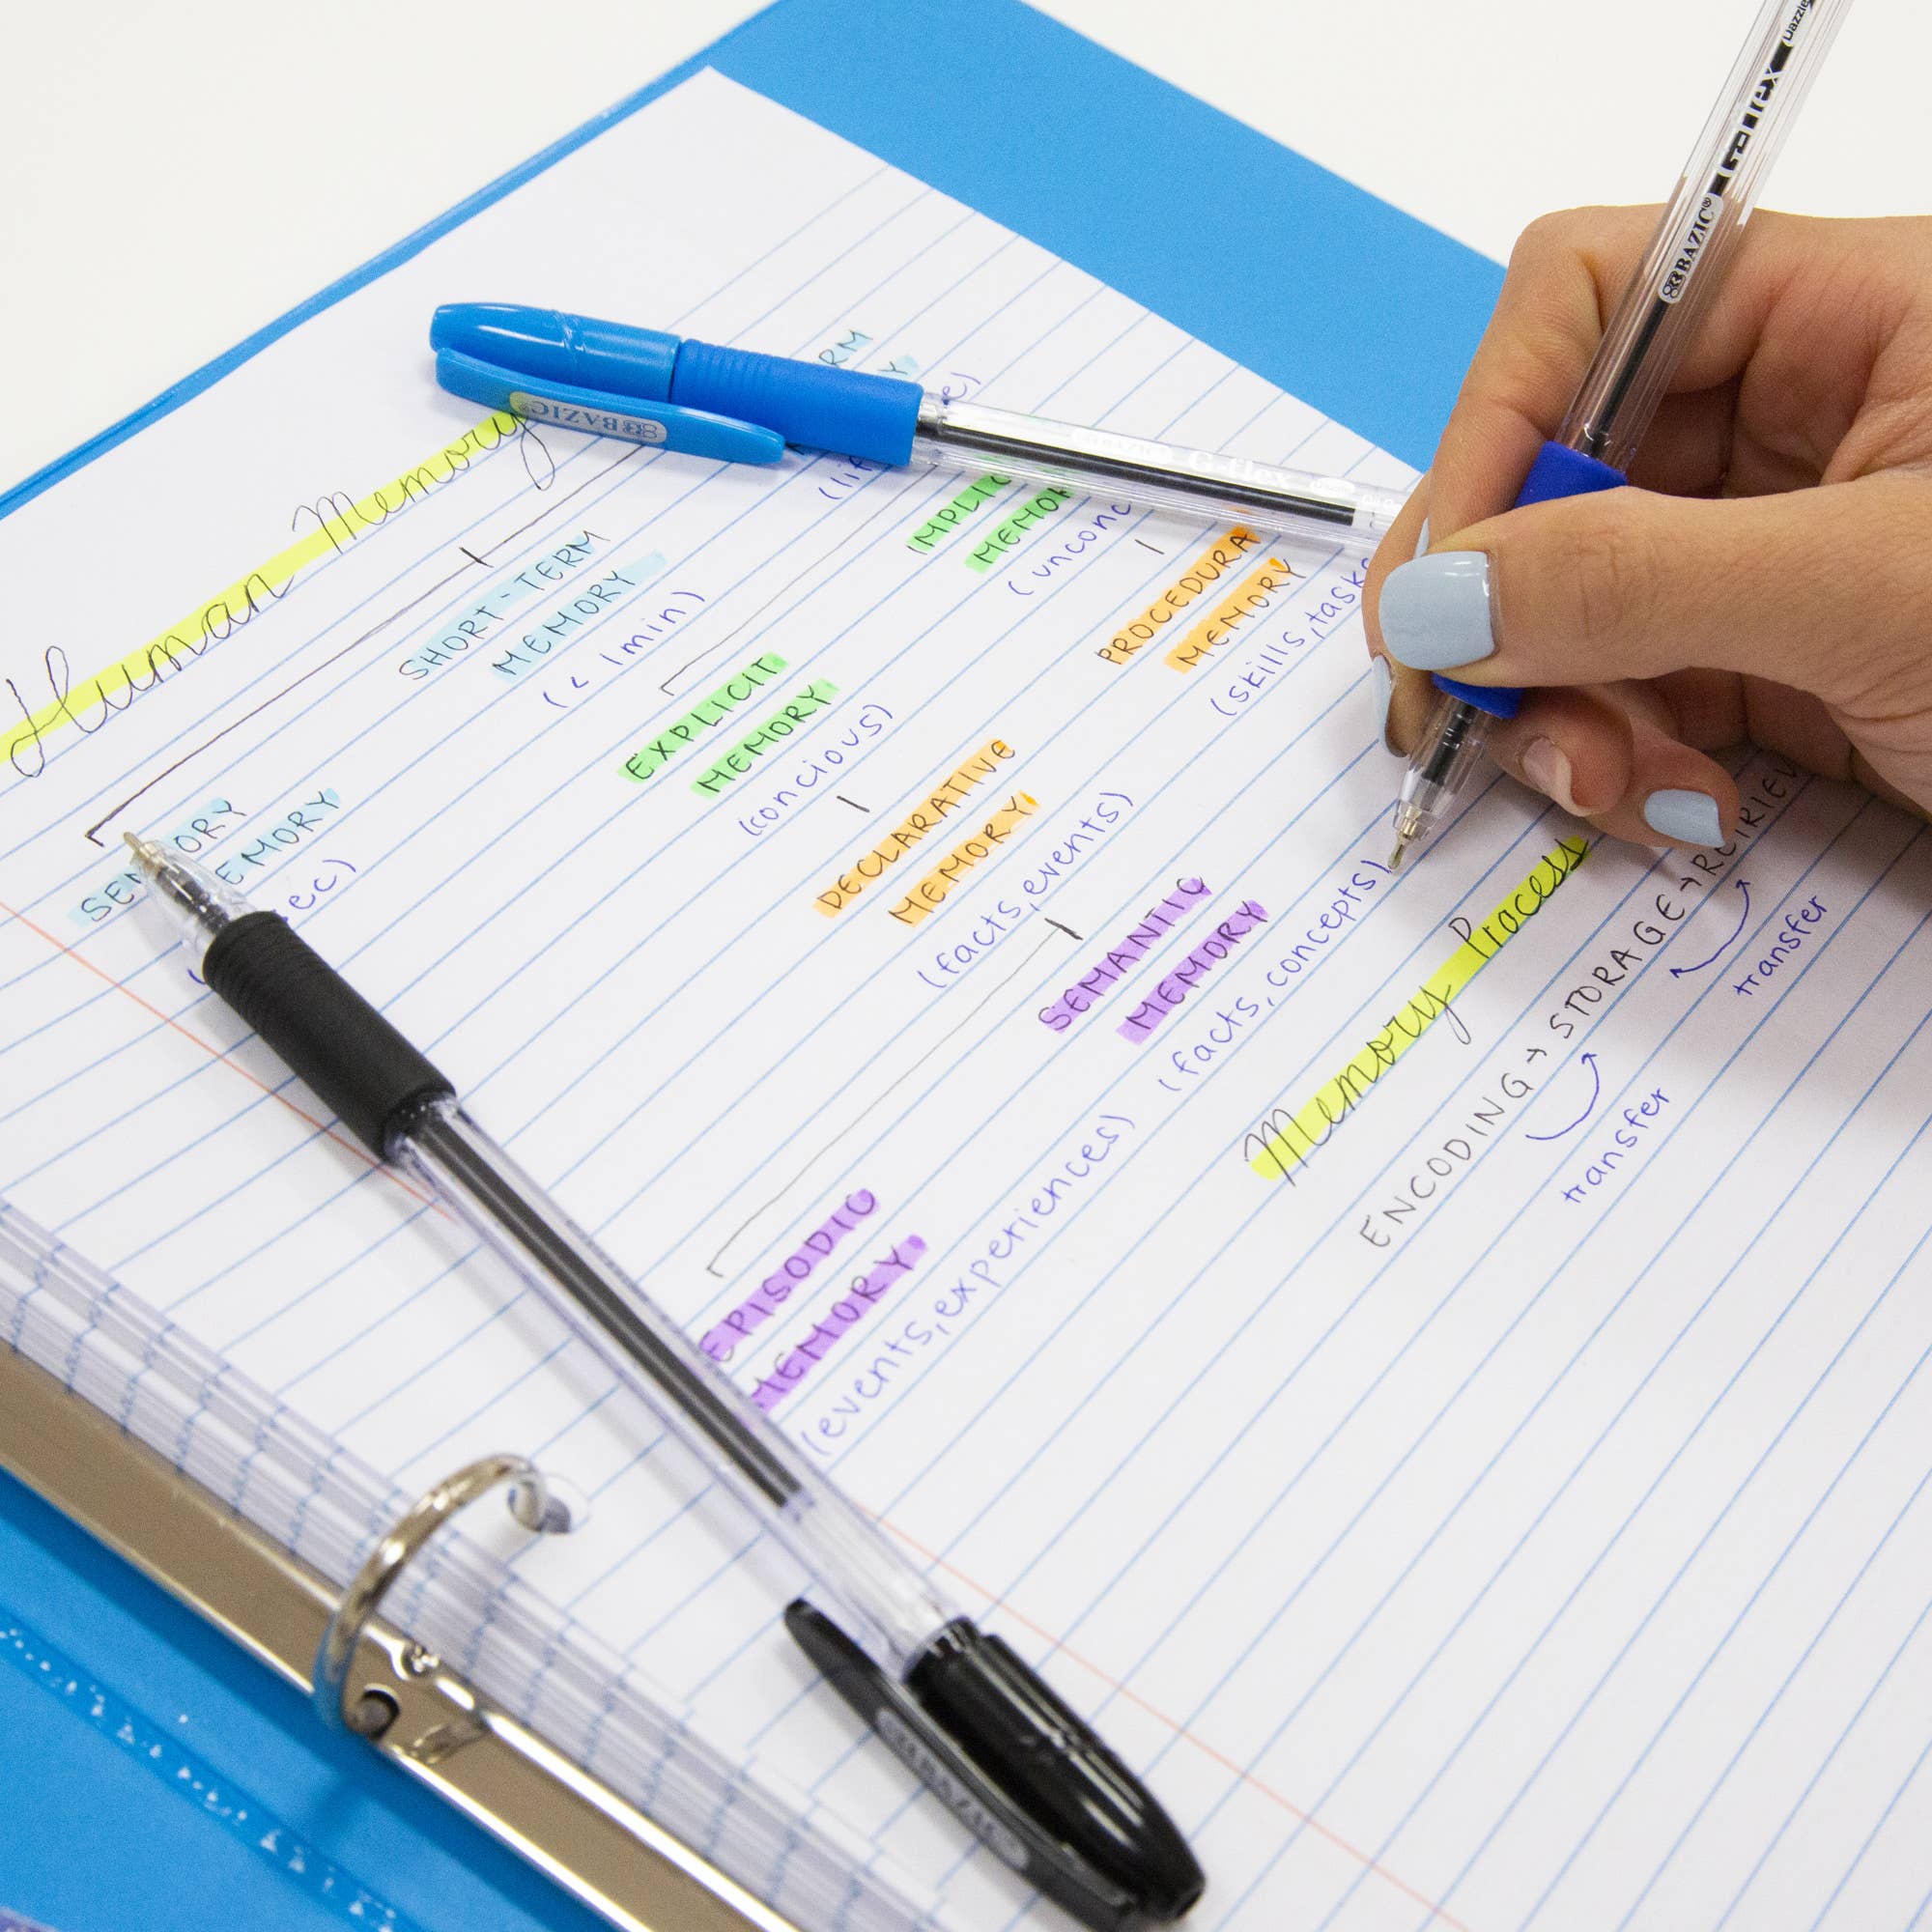 Human Memory
SHORT-TERM
MEMORY
(< 1min)
EXPLICIT
MEMORY
(concious)
DECLARATIVE
MEMORY
(facts, events)
PROCEDURA
MEMORY
(skills, tasks
EPISODIC
MEMORY
(events, experiences)
SEMANTIC
MEMORY
(facts, concepts)
Memory Process
ENCODING → STORAGE → RETRIEV
transfer
transfer
BAZIC
G-flex
BAZIC
G-Flex
Dazzle